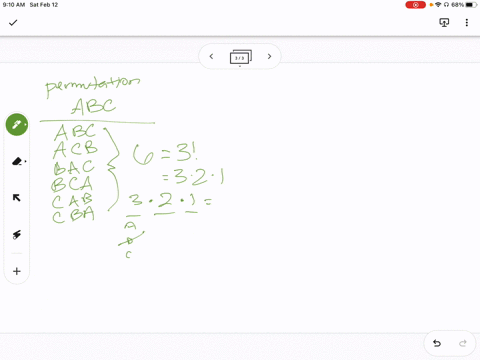 9:10 AM Sat Feb 12
68%
3 / 3
permutation
ABC
ABC
ACB
BAC
BCA
CAB
CBA
6 = 3!
= 3 · 2 · 1
3 · 2 · 1 =
A
B
C